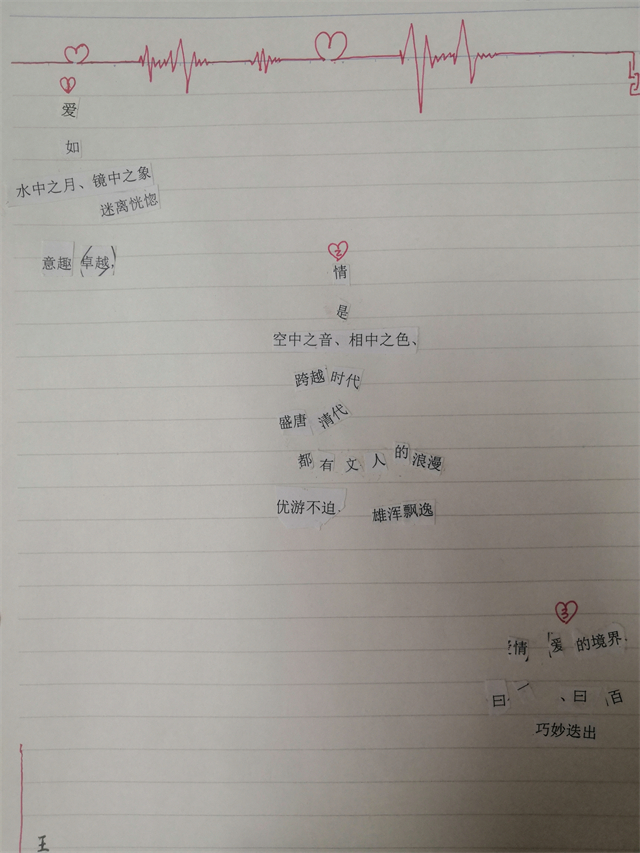 1
爱
如
水中之月、镜中之象
迷离恍惚
意趣 卓越,
2
情
是
空中之音、相中之色、
跨越时代
盛唐 清代
都有文人的浪漫
优游不迫. 雄浑飘逸
3
情 爱的境界.
曰一、曰百
巧妙迭出
王